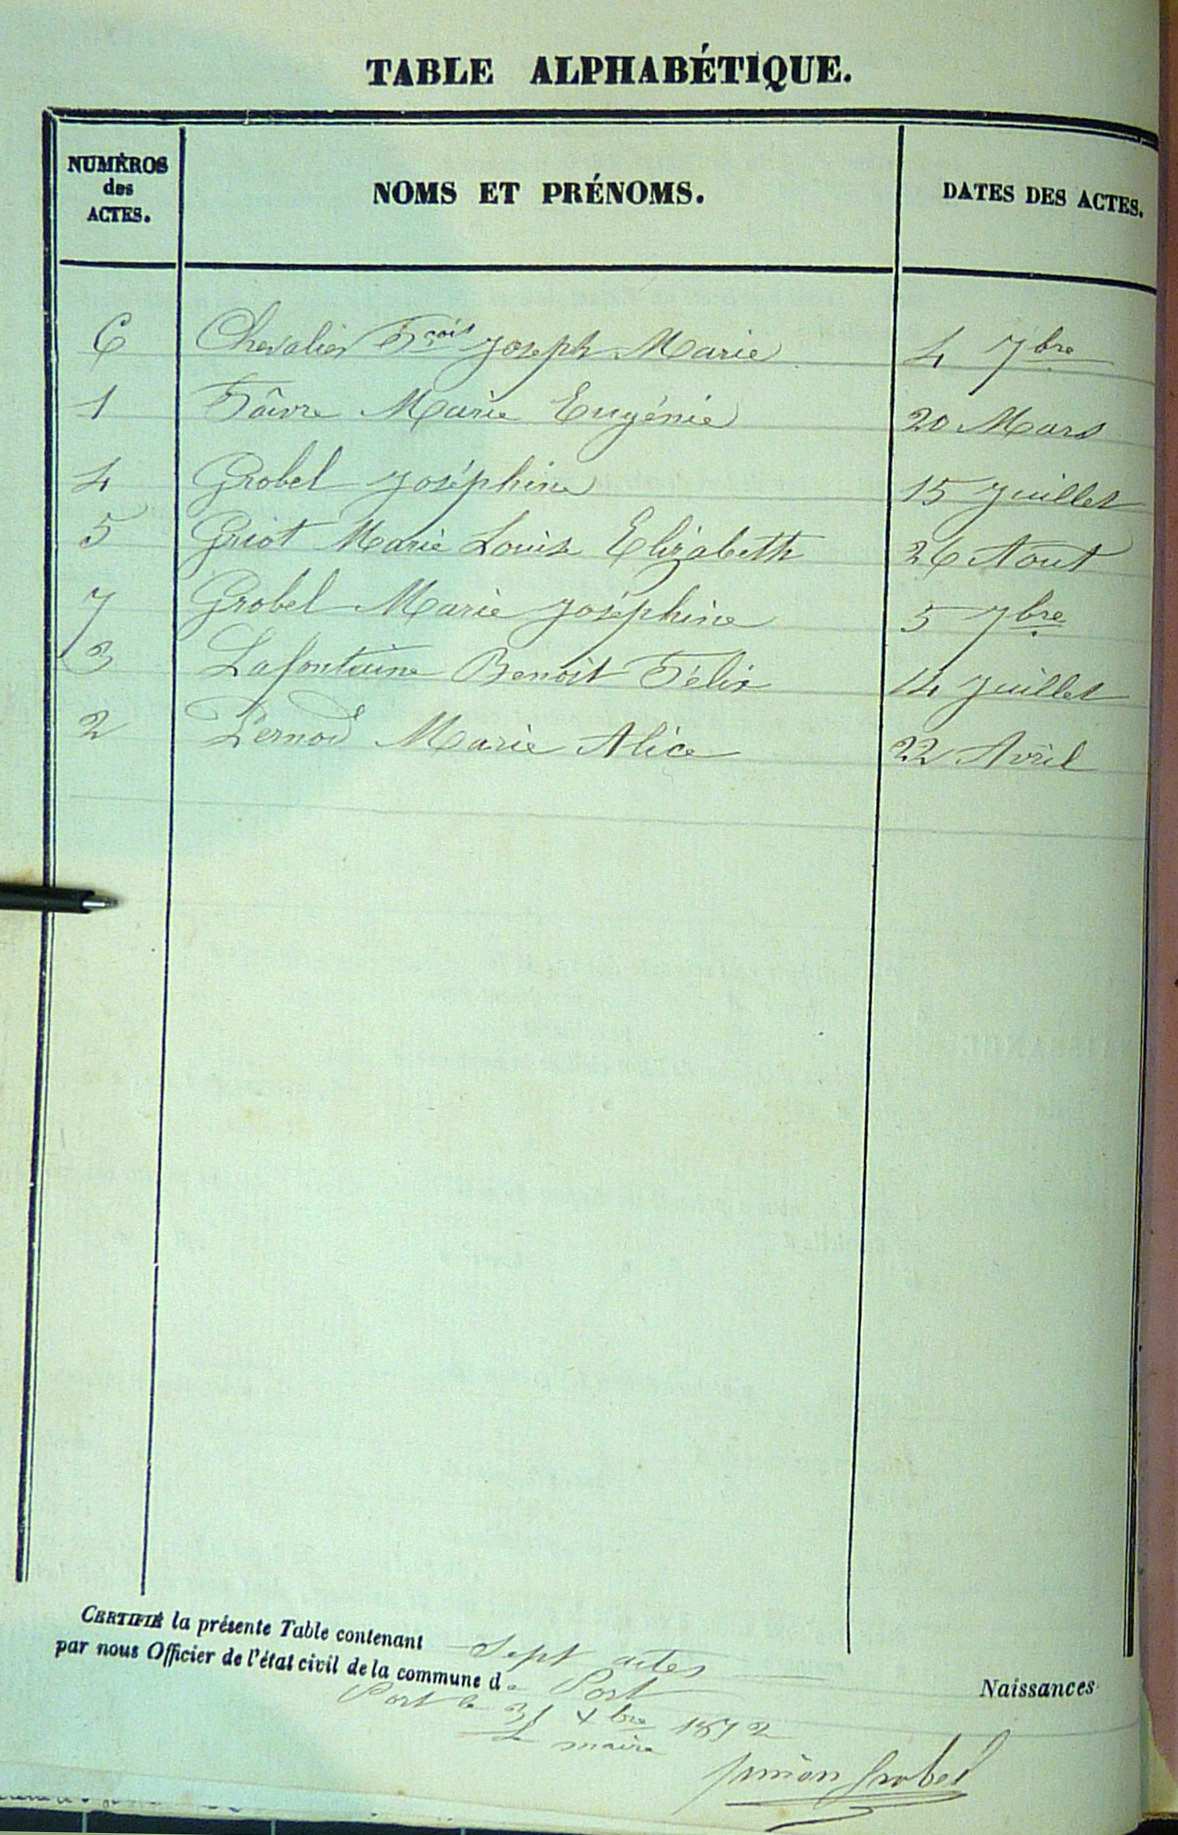 TABLE ALPHABÉTIQUE.
NUMÉROS des ACTES. NOMS ET PRÉNOMS. DATES DES ACTES.
6 Chevalier Fçois Joseph Marie 4 7bre
1 Faivre Marie Eugénie 20 Mars
4 Grobel Joséphine 15 Juillet
5 Griot Marie Louise Elizabeth 26 Aout
7 Grobel Marie Joséphine 5 7bre
3 Lafontaine Benoit Félix 14 Juillet
2 Pernod Marie Alice 22 Avril
CERTIFIÉ la présente Table contenant Sept actes
par nous Officier de l'état civil de la commune de Port
Naissances
Port le 31 Xbre 1892
Le maire
Grobel